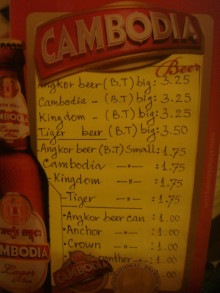 CAMBODIA
Beer
Angkor beer (B.T) big: 3.25
Cambodia - (B.T) big: 3.25
Kingdom - (B.T) big: 3.25
Tiger beer (B.T) big: 3.50
Angkor beer (B.T) Small: 1.75
Cambodia — 〃 — : 1.75
Kingdom — 〃 — : 1.75
Tiger — 〃 — : 1.75
Angkor beer can : 1.00
Anchor — 〃 : 1.00
Crown — 〃 : 1.00
panther — : 1.00
CAMBODIA
Lager
Beer